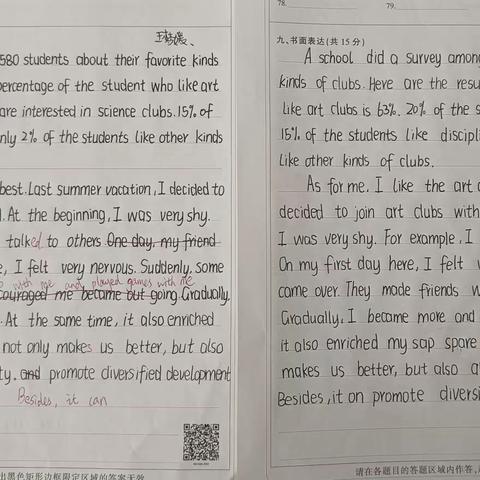 580 students about their favorite kinds
percentage of the student who like art
are interested in science clubs. 15% of
only 2% of the students like other kinds
best. Last summer vacation, I decided to
. At the beginning, I was very shy.
talked to others One day, my friend
e, I felt very nervous. Suddenly, some
with me and played games with me
couraged me became out going. Gradually,
. At the same time, it also enriched
not only makes us better, but also
ty. and promote diversified development
Besides, it can
出黑色矩形边框限定区域的答案无效
78.
79.
九、书面表达(共 15 分)
A school did a survey among
kinds of clubs. Here are the resu
like art clubs is 63%. 20% of the s
15% of the students like discipli
like other kinds of clubs.
As for me, I like the art c
decided to join art clubs with
I was very shy. For example, I
On my first day here, I felt v
came over. They made friends w
Gradually, I became more and
it also enriched my sap spare
makes us better, but also a
Besides, it on promote diversi
请在各题目的答题区域内作答,